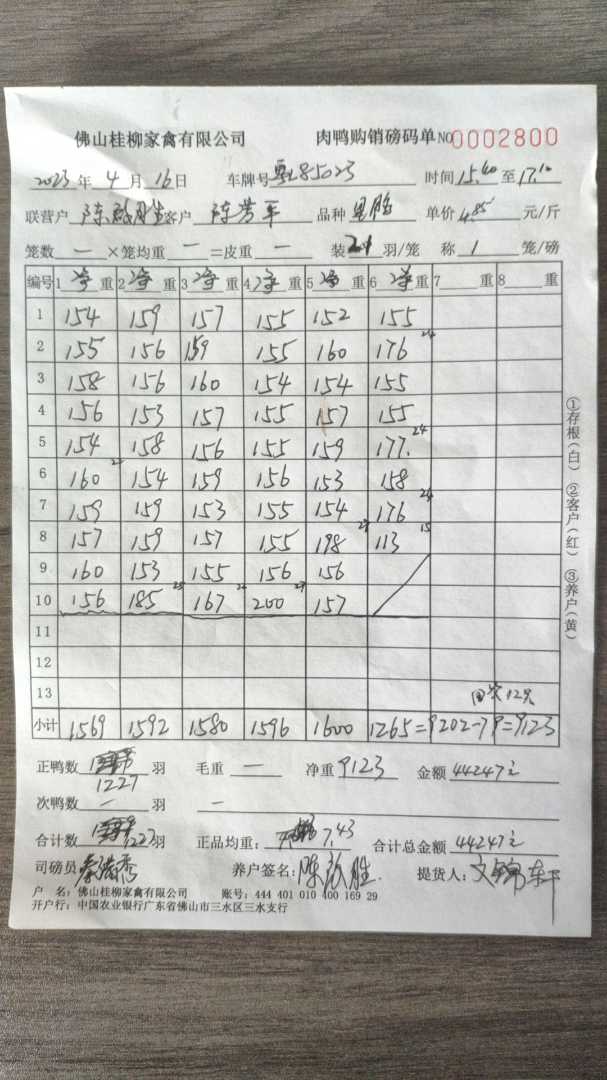 佛山桂柳家禽有限公司 肉鸭购销磅码单 NO 0002800
2023年 4月 16日 车牌号 粤L85023 时间 15.40 至 17.10
联营户 陈啟胜 客户 陈芳平 品种 单价 4.85 元/斤
笼数 — ×笼均重 — =皮重 — 装 21 羽/笼 称 1 笼/磅
编号 1 净重 2 净重 3 净重 4 净重 5 净重 6 净重 7 重 8 重
1 154 159 157 155 152 155
2 155 156 159 155 160 176 24
3 158 156 160 154 154 155
4 156 153 157 155 157 155
5 154 158 156 155 159 177. 24
6 160 154 159 156 153 158
7 159 159 153 155 154 176 24
8 157 159 157 155 198 27 113 15
9 160 153 155 156 156
10 156 185 25 167 200 27 157
11
12
13 12只
小计 1569 1592 1580 1596 1600 1265=9202-79=9123
正鸭数 1227 羽 毛重 — 净重 9123 金额 44247元
次鸭数 — 羽 —
合计数 1227 羽 正品均重: 7.43 合计总金额 44247元
司磅员 养户签名: 陈啟胜. 提货人:
户 名: 佛山桂柳家禽有限公司 账号: 444 401 010 400 169 29
开户行: 中国农业银行广东省佛山市三水区三水支行
①存根(白) ②客户(红) ③养户(黄)